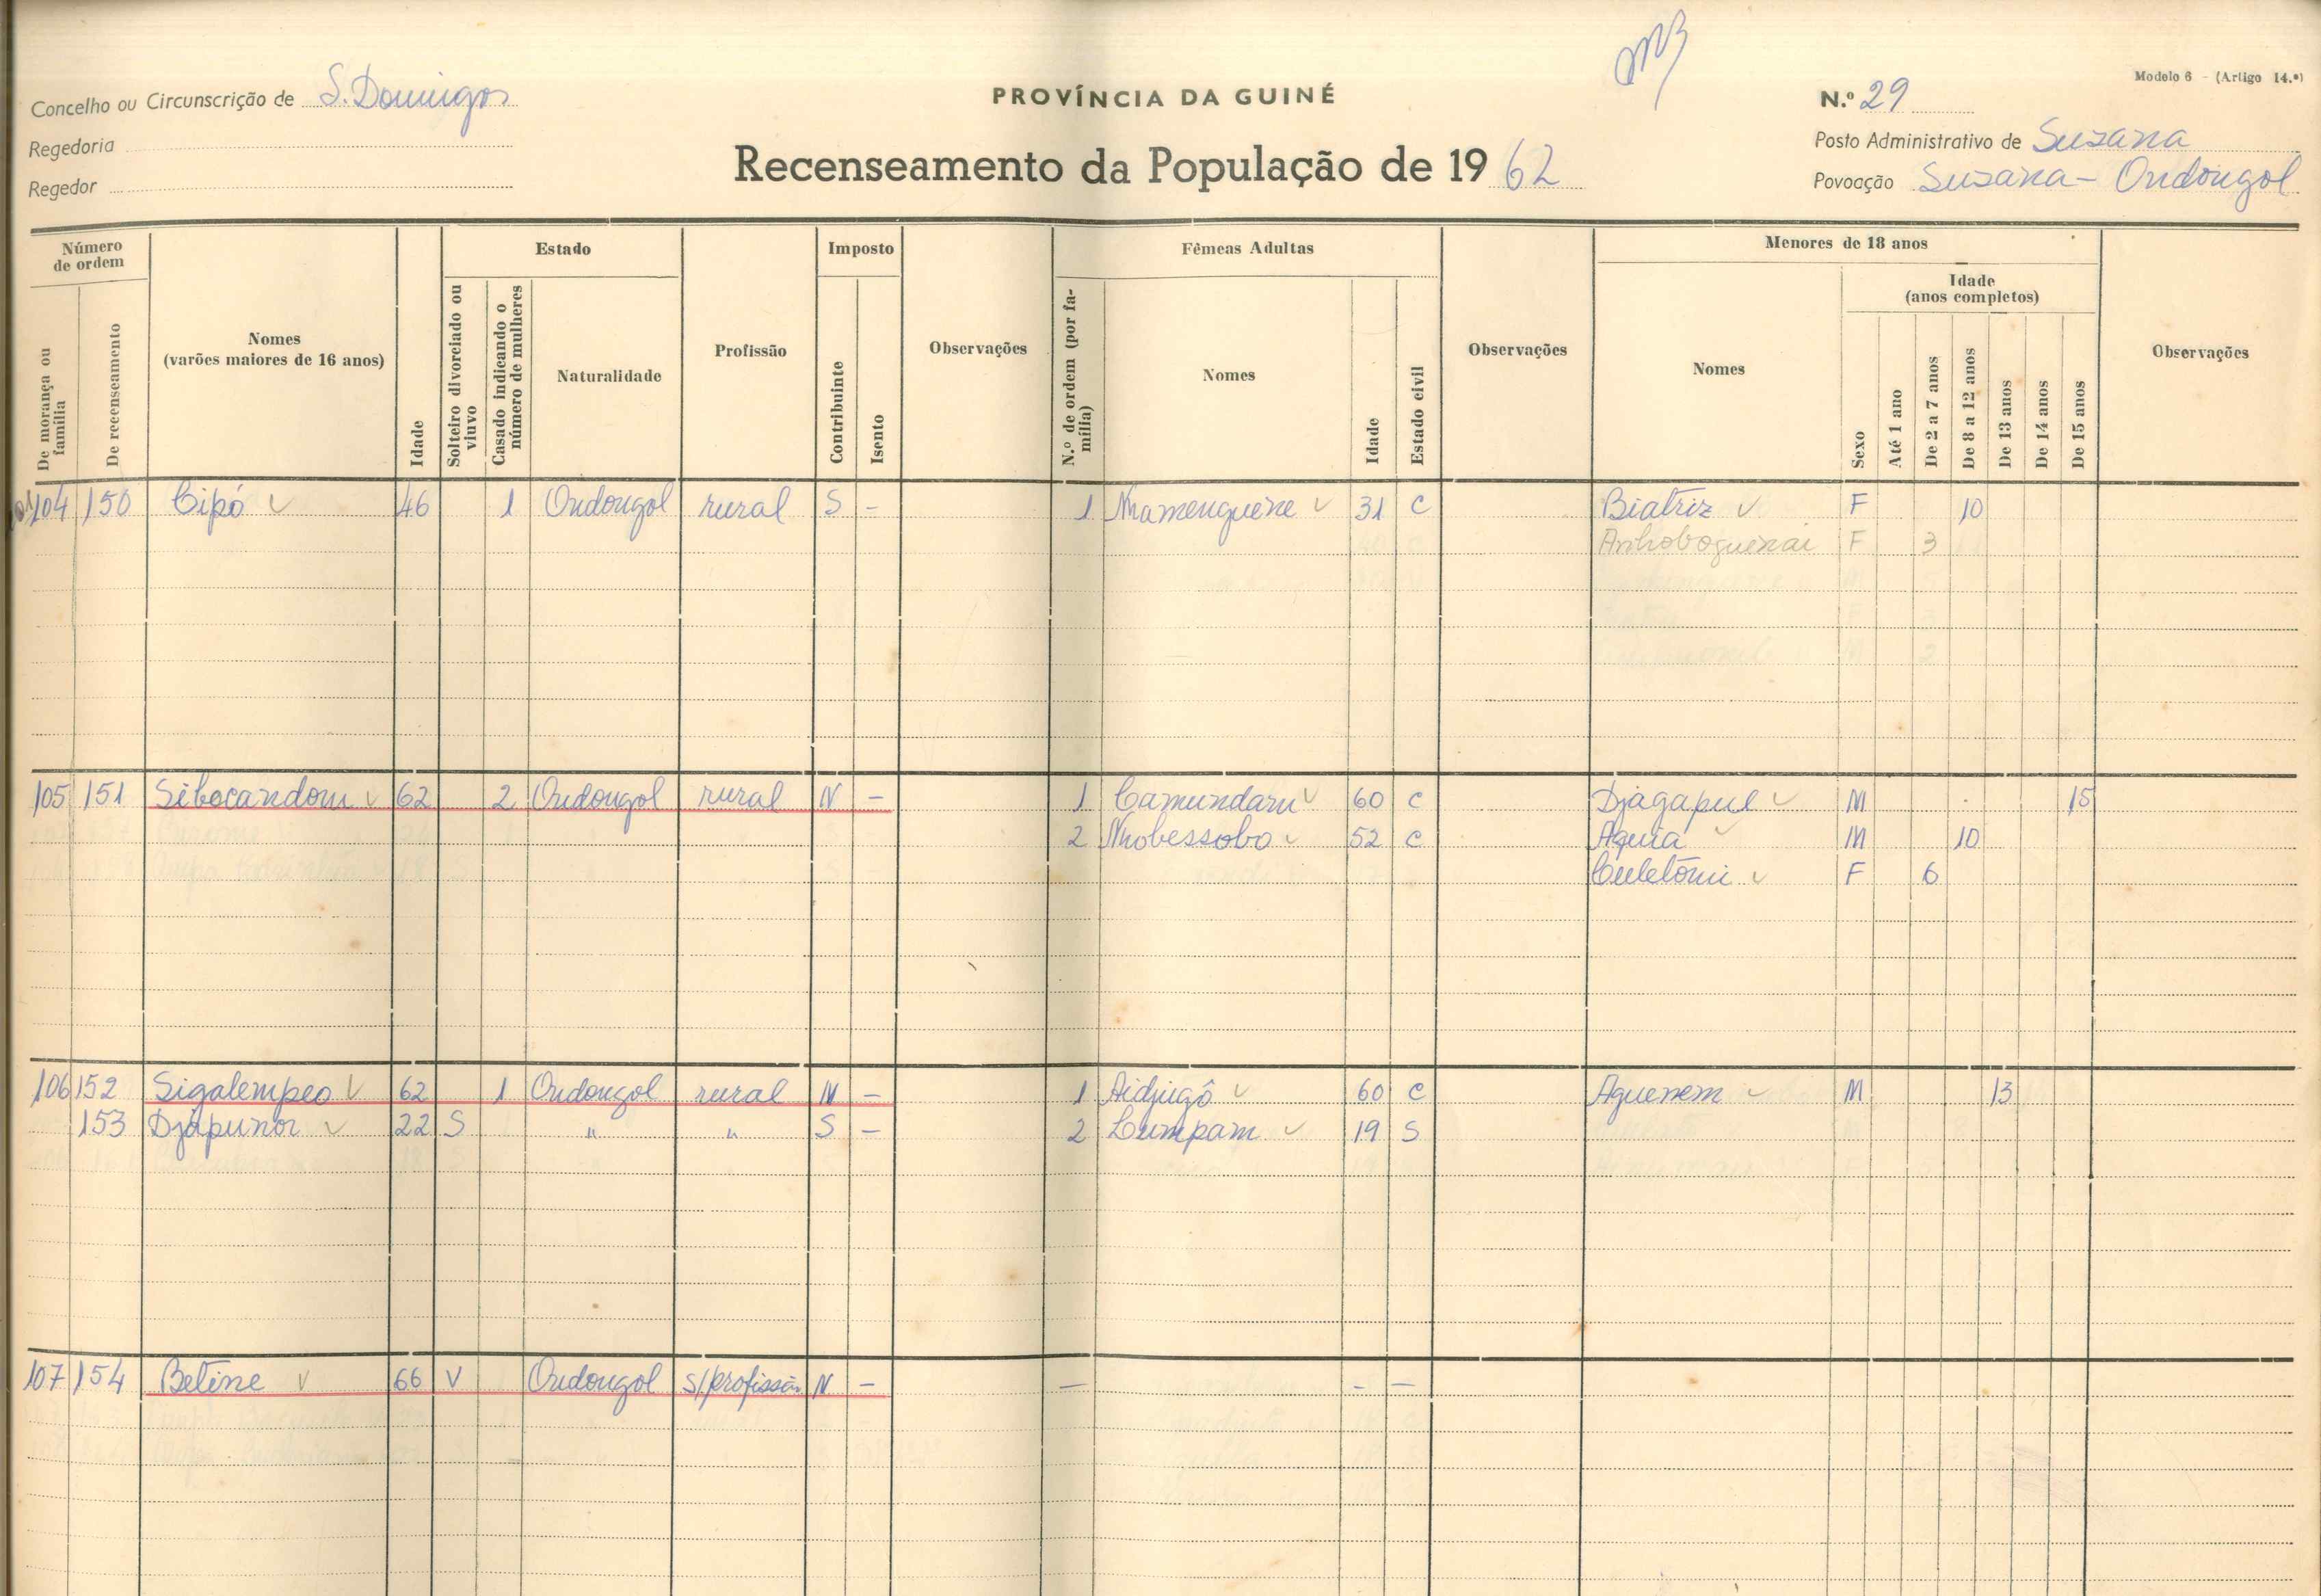 Modelo 6 - (Artigo 14.º)
Concelho ou Circunscrição de S. Domingos
PROVÍNCIA DA GUINÉ
N.º 29
Regedoria
Regedor
Recenseamento da População de 1962
Posto Administrativo de Suzana
Povoação Suzana - Ondongol
Número de ordem
De morança ou família
De recenseamento
Nomes
(varões maiores de 16 anos)
Idade
Estado
Solteiro divorciado ou viuvo
Casado indicando o número de mulheres
Naturalidade
Profissão
Imposto
Contribuinte
Isento
Observações
Fêmeas Adultas
N.º de ordem (por família)
Nomes
Idade
Estado civil
Observações
Menores de 18 anos
Nomes
Sexo
Idade
(anos completos)
Até 1 ano
De 2 a 7 anos
De 8 a 12 anos
De 13 anos
De 14 anos
De 15 anos
Observações
104 150 Cipó 46 1 Ondongol rural S - 1 Nhamenguene 31 C Biatriz F 10
Anhoboguenai F 3
105 151 Sibocandom 62 2 Ondongol rural N - 1 Camundam 60 C Djagapul M 15
2 Nhobessobo 52 C Aquia M 10
Culetomi F 6
106 152 Sigalempeo 62 1 Ondongol rural N - 1 Aidjigô 60 C Aguenem M 13
153 Djápunor 22 S " " S - 2 Lumpam 19 S
107 154 Betine 66 V Ondongol s/profissão N - - - -